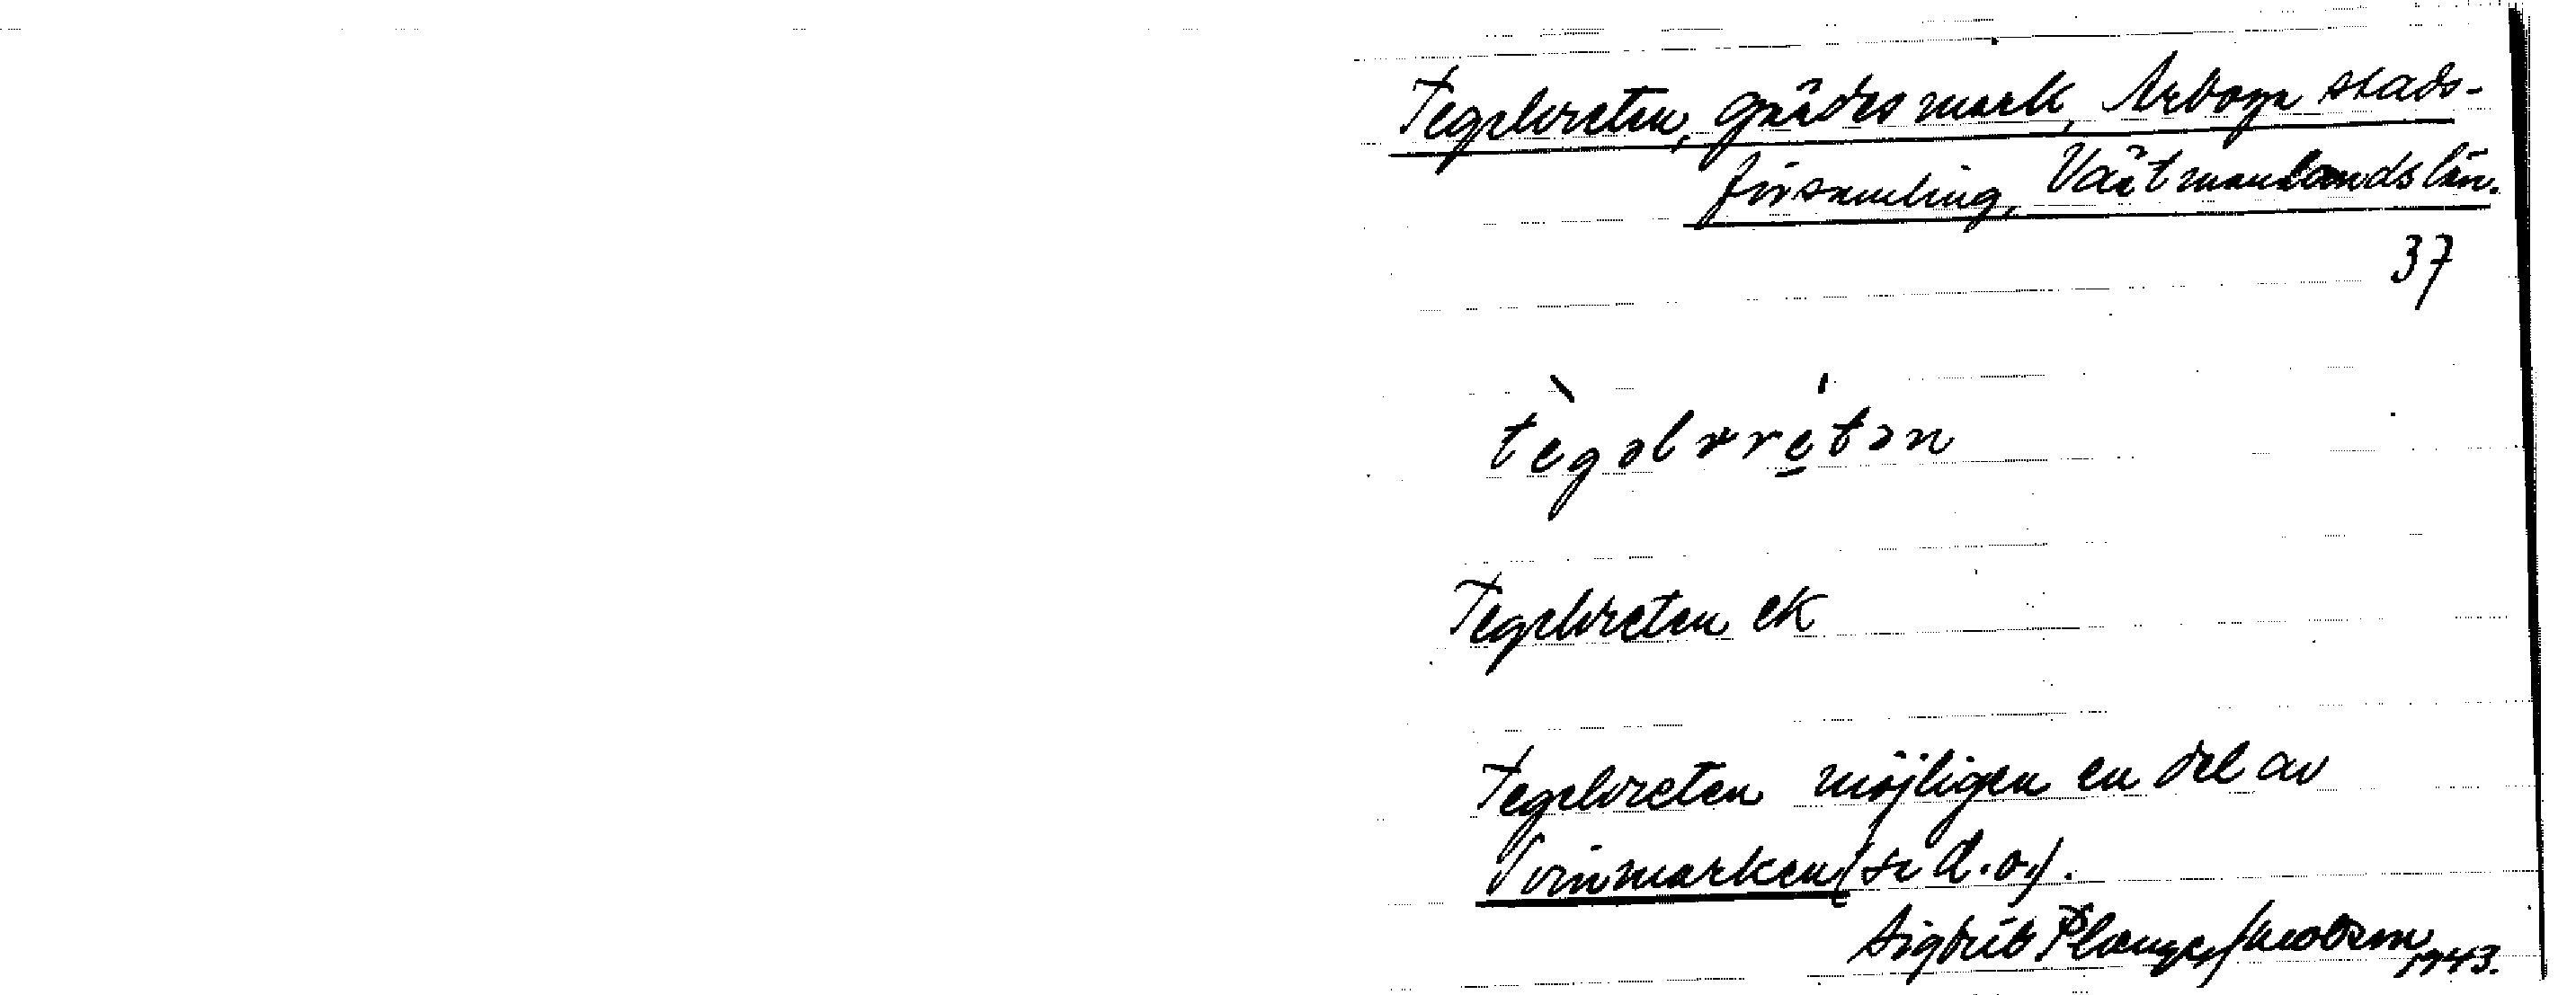 Tegelvreten, gärdesmark, Arboga stads-
församling, Västmanlands län.
37
tègəlvre̱tən
Tegelvreten ek
Tegelvreten möjligen en del av
Svinmarken (se d.o.).
Plænge Jacobson 1943.